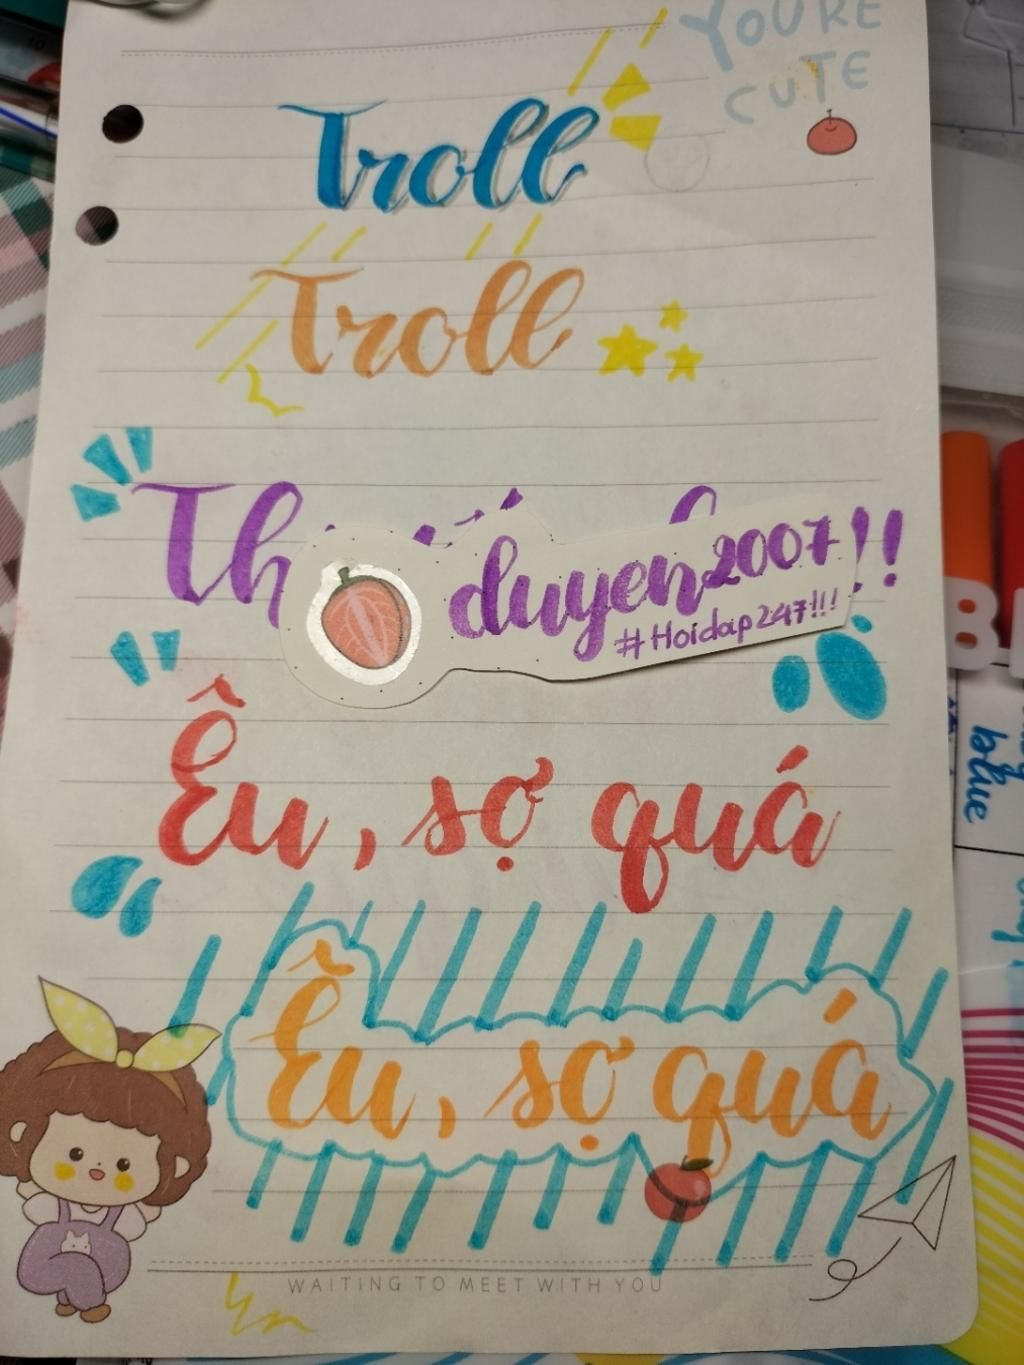 YOU'RE
CUTE
Troll
Troll
Th
duyen2007 !!
#Hoidap247!!!
Êu, sợ quá
Êu, sợ quá
WAITING TO MEET WITH YOU
blue